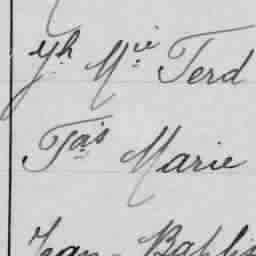 Jh Mie Ferd
Fçois Marie
Jean-Baptis